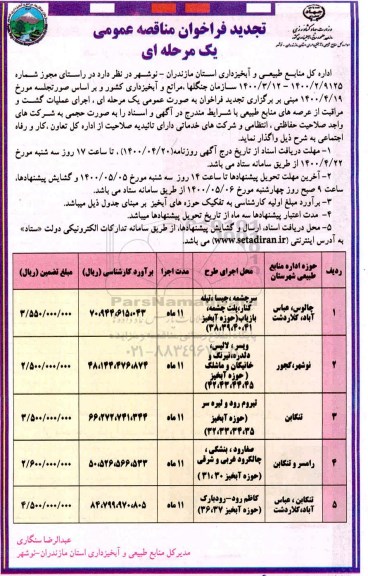 تجدید فراخوان مناقصه عمومی
یک مرحله ای
اداره کل منابع طبیعی و آبخیزداری استان مازندران - نوشهر در نظر دارد در راستای مجوز شماره
۱۴۰۰/۲/۹۱۲۵ - ۱۴۰۰/۳/۱۲ سازمان جنگلها ،مراتع و آبخیزداری کشور و بر اساس صورتجلسه مورخ
۱۴۰۰/۴/۱۹ مبنی بر برگزاری تجدید فراخوان به صورت عمومی یک مرحله ای ، اجرای عملیات گشت و
مراقبت از عرصه های منابع طبیعی با شرایط مندرج در آگهی و اسناد را به صورت حجمی به شرکت های
واجد صلاحیت حفاظتی ، انتظامی و شرکت های خدماتی دارای تائیدیه صلاحیت از اداره کل تعاون ،کار و رفاه
اجتماعی به شرح ذیل واگذار نماید.
۱- مهلت دریافت اسناد از تاریخ درج آگهی روزنامه(۱۴۰۰/۰۴/۲۰) ، تا ساعت ۱۷ روز سه شنبه مورخ
۱۴۰۰/۴/۲۲ از طریق سامانه ستاد می باشد.
۲- آخرین مهلت تحویل پیشنهادها تا ساعت ۱۴ روز سه شنبه مورخ ۱۴۰۰/۰۵/۰۵ و گشایش پیشنهادها،
ساعت ۹ صبح روز چهارشنبه مورخ ۱۴۰۰/۰۵/۰۶ از طریق سامانه ستاد می باشد.
۳- برآورد مبلغ اولیه کارشناسی به تفکیک حوزه های آبخیز بر مبنای جدول ذیل میباشد.
۴- مدت اعتبار پیشنهادها سه ماه از تاریخ تحویل پیشنهادها میباشد.
۵- محل دریافت اسناد، ارسال و گشایش پیشنهادها، از طریق سامانه تدارکات الکترونیکی دولت «ستاد»
به آدرس اینترنتی (www.setadiran.ir) می باشد.
ردیف | حوزه اداره منابع طبیعی شهرستان | محل اجرای طرح | مدت اجرا | برآورد کارشناسی (ریال) | مبلغ تضمین (ریال)
۱ | چالوس، عباس آباد، کلاردشت | سرچشمه ،چیسا ،تیله کنار،پلت چشمه، بازیاب(حوزه آبخیز ۳۸،۳۹،۴۰،۴۱) | ۱۱ ماه | ۷۰،۹۴۴،۶۱۵،۰۴۳ | ۳/۵۵۰/۰۰۰/۰۰۰
۲ | نوشهر،کجور | ویسر ، لالیس، دلدره،نیرنگ و خانیکان و ماشلک ( حوزه آبخیز ۴۲،۴۳،۴۴،۴۵) | ۱۱ ماه | ۴۸،۱۴۴،۴۷۶،۸۷۴ | ۲/۵۰۰/۰۰۰/۰۰۰
۳ | تنکابن | تیروم رود و لیره سر (حوزه آبخیز ۳۲،۳۳،۳۴،۳۵) | ۱۱ ماه | ۶۶،۲۷۲،۷۴۱،۳۴۴ | ۳/۵۰۰/۰۰۰/۰۰۰
۴ | رامسر و تنکابن | صفارود ، بنشکی ، چالکرود غربی و شرقی (حوزه آبخیز ۳۰،۳۱) | ۱۱ ماه | ۵۰،۵۲۶،۵۶۶،۵۳۳ | ۲/۶۰۰/۰۰۰/۰۰۰
۵ | تنکابن ، عباس آباد،کلاردشت | کاظم رود-رودبارک (حوزه آبخیز ۳۶،۳۷) | ۱۱ ماه | ۸۴،۷۹۹،۹۷۰،۸۰۵ | ۴/۵۰۰/۰۰۰/۰۰۰
عبدالرضا سنگاری
مدیرکل منابع طبیعی و آبخیزداری استان مازندران-نوشهر